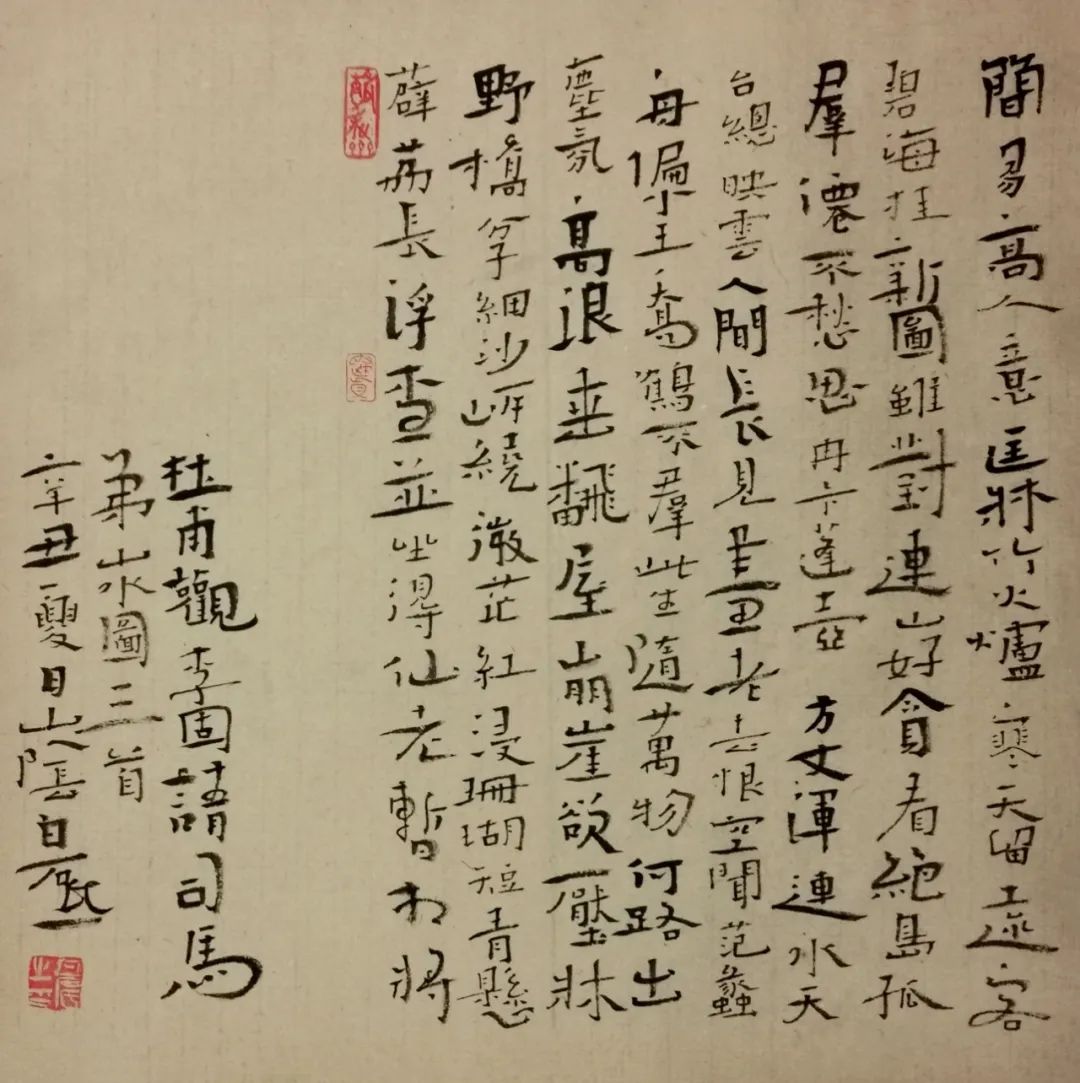 簡易高人意匡牀竹火爐寒天留遠客
碧海挂新圖雖對連山好貪看絕島孤
羣僊不愁思冉下蓬壺 方丈渾連水天
台總映雲人間長見畫老去恨空聞范蠡
舟偏小王喬鶴不羣此生隨萬物何路出
塵氛 高浪垂翻屋崩崖欲壓牀
野橋分子細沙岸繞微茫紅浸珊瑚短青懸
薜荔長浮查並坐得仙老暫相將
杜甫觀李固請司馬
弟山水圖三首
辛丑夏日山陰白砥